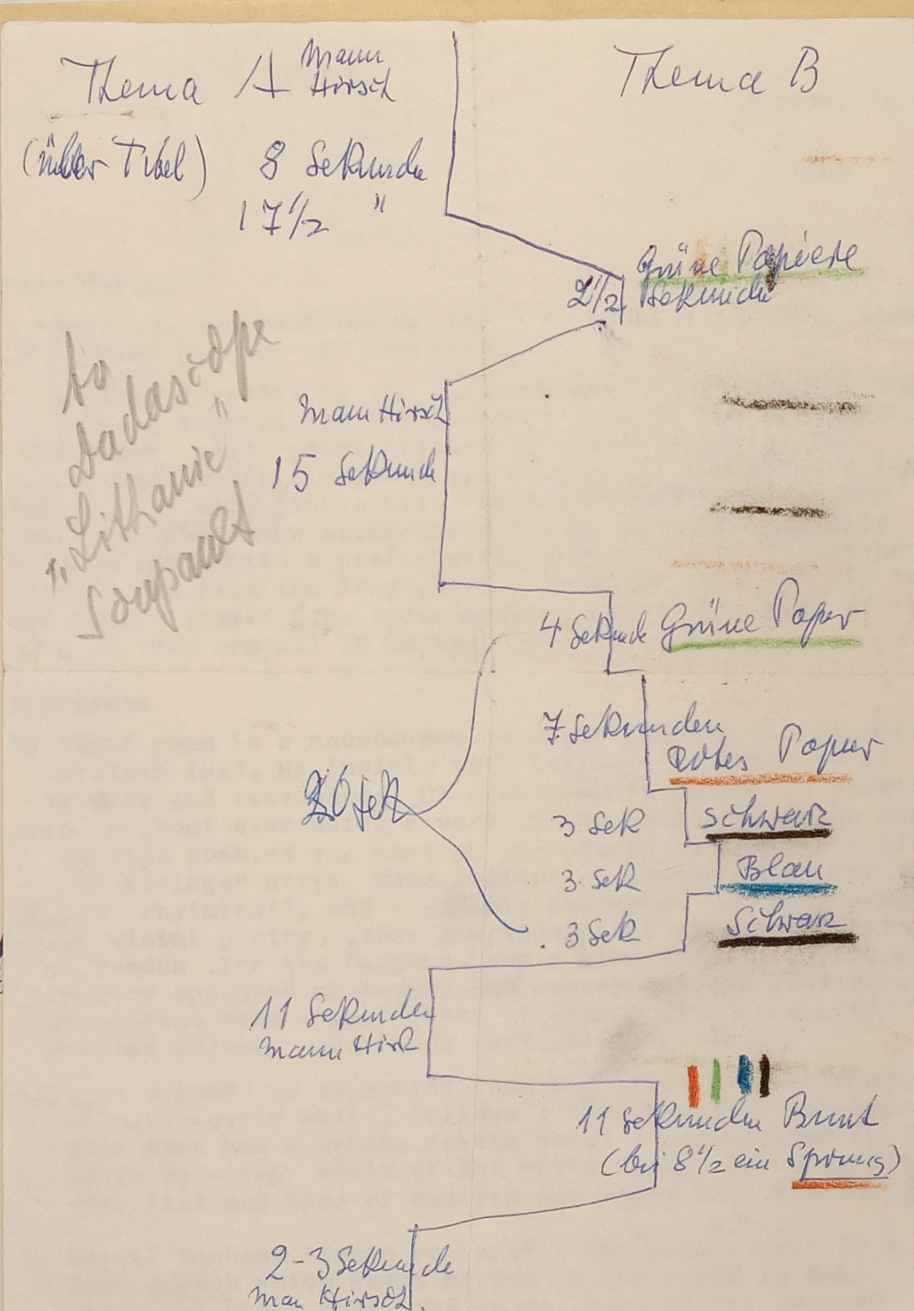 Thema A Mann
Hirsch
Thema B
(über Titel) 8 Sekunde
17 1/2 "
Grüne Papiere
2 1/2 Sekunde
to
Dadascope
"Lithanie"
Soupault
Mann Hirsch
15 Sekunde
4 Sekunde Grüne Papier
7 Sekunden
Rotes Papier
20 Sek
3 Sek Schwarz
3 Sek Blau
3 Sek Schwarz
11 Sekunden
Mann Hirsch
11 Sekunden Bunt
(bei 8 1/2 ein Sprung)
2-3 Sekunde
Man Hirsch.